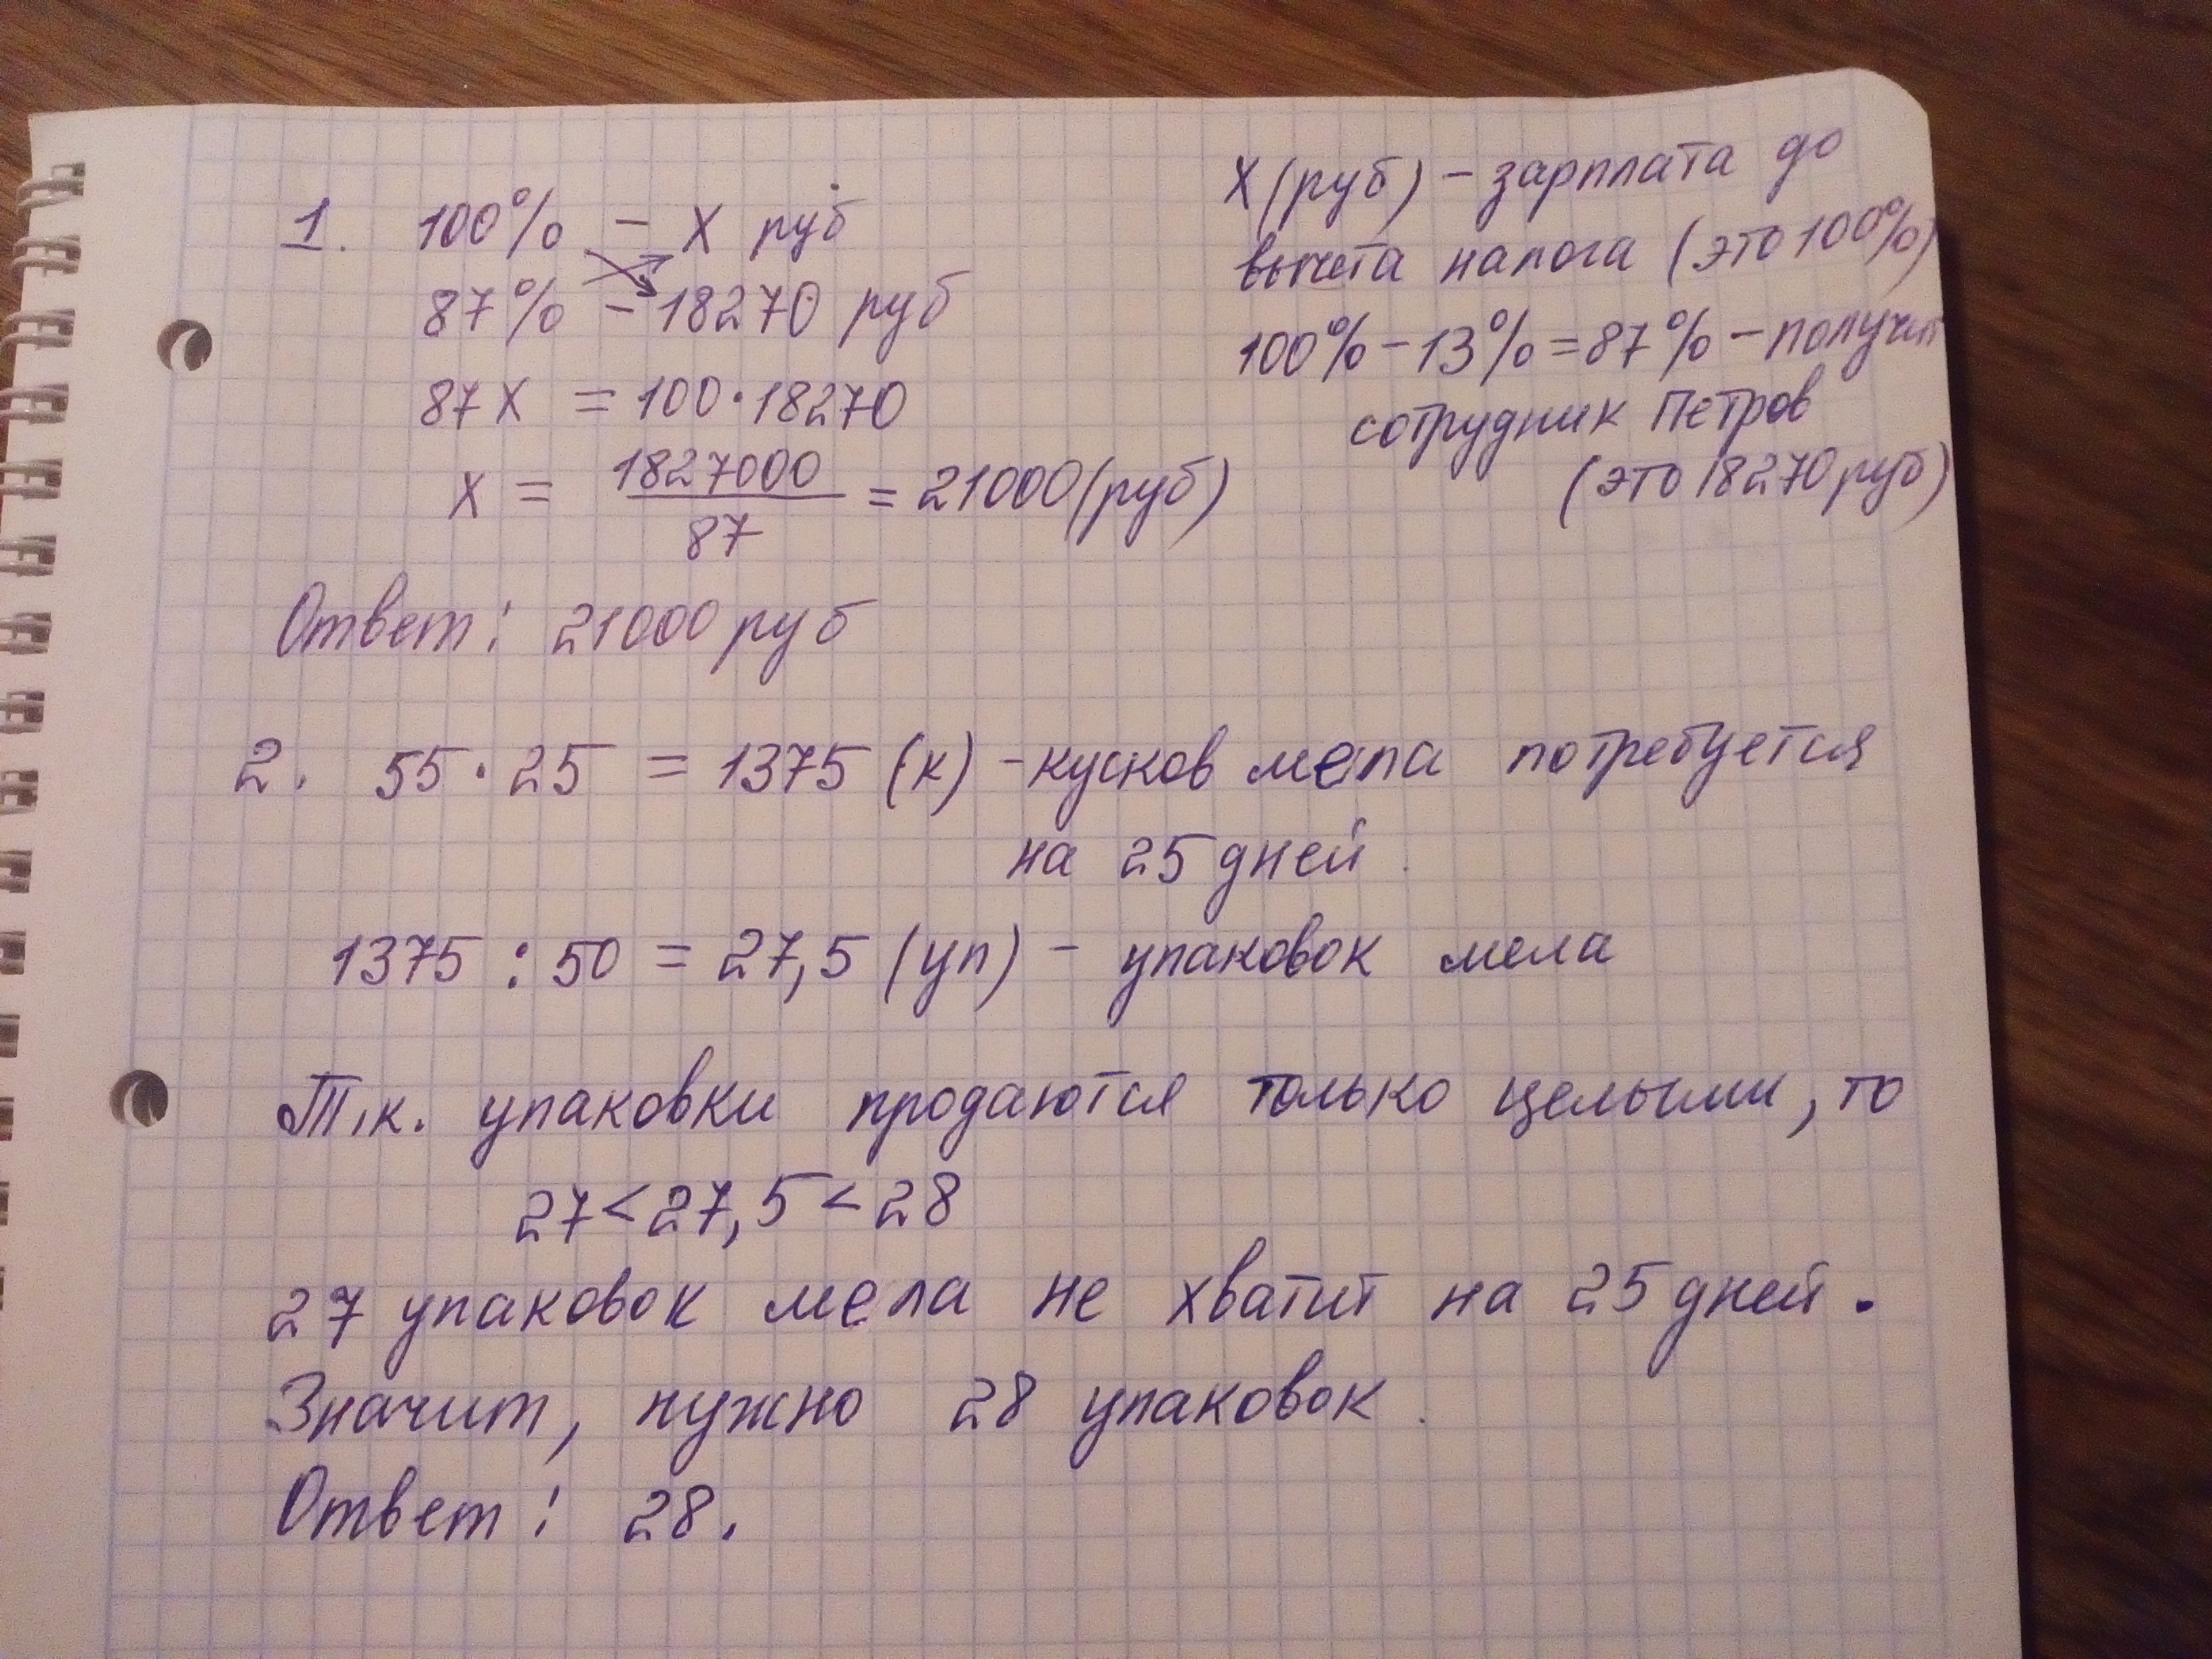 1. 100% – X руб
87% – 18270 руб
87X = 100·18270
X = 1827000 / 87 = 21000(руб)
X(руб) – зарплата до
вычета налога (это 100%)
100% – 13% = 87% – получит
сотрудник Петров
(это 18270 руб)
Ответ: 21000 руб
2. 55·25 = 1375 (к) – кусков мела потребуется
на 25 дней.
1375 : 50 = 27,5 (уп) – упаковок мела
Т.к. упаковки продаются только целыми, то
27<27,5<28
27 упаковок мела не хватит на 25 дней.
Значит, нужно 28 упаковок.
Ответ: 28.